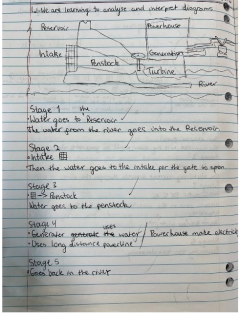 We are learning to analyse and interpret diagrams.
Reservoir
Powerhouse
Intake
Generation
Penstock
Turbine
River
Stage 1 the
•Water goes to Reservoir
The water from the river goes into the Reservoir
Stage 2
•Intake
•Then the water goes to the intake for the gate to open
Stage 3
→ Penstock
Water goes to the penstock
Stage 4 uses
•Generator generate the water / Powerhouse make electrict
•Uses long distance powerline
Stage 5
•Goes back in the river